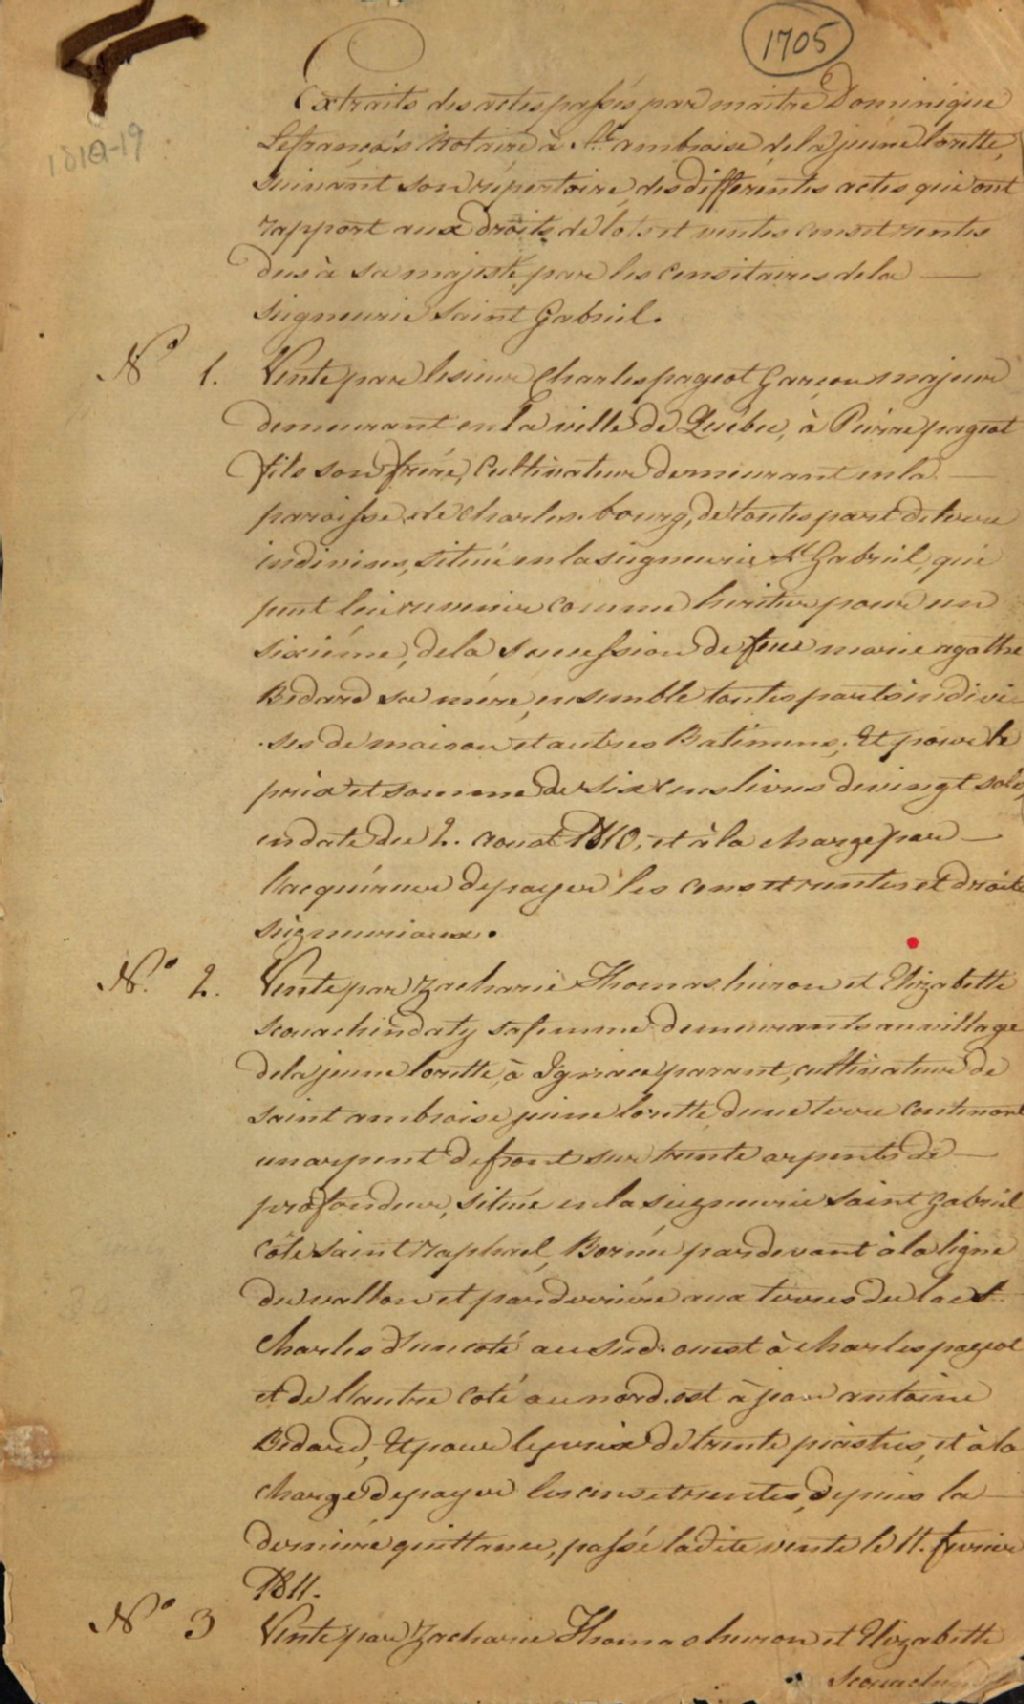 1705
1810-19
Extraits des actes passés par maitre Dominique
Lefrançois Notaire à St. ambroise de la jeune lorette,
suivant son répertoire, des differentes actes qui ont
rapport aux Droits de lots et ventes cens et rentes
dus à sa majesté, par les censitaires de la —
seigneurie Saint Gabriel.
No 1. Vente par le sieur Charles pageot Garçon majeur
demeurant en la ville de Québec, à Pierre pageot
fils son frère, Cultivateur demeurant en la —
paroisse de Charles-bourg, de toutes part de terre
indivises, située en la seigneurie St Gabriel, qui
peut lui revenir comme heritier pour un
sixiéme, de la succession de feue marie agathe
Bedard sa mère, ensemble toutes parts indivi-
ses de maison et autres Batimens, Et pour le
prix et somme de six cens livres de vingt sols,
en date du 2. aoust 1810, et à la charge par —
l'acquéreur de payer les cens et rentes et droits
seigneuriaux.
No. 2. Vente par Zacharie Thomas huron et Elizabette
scouachindaty sa femme demeurants au village
de la jeune lorette, à Ignace parant, cultivateur de
saint ambroise jeune lorette, d'une terre contenant
un arpent de front sur trente arpents de —
profondeur, située en la seigneurie saint Gabriel
côte saint raphael, Bornée par devant à la ligne
du vallon et par derrière aux terres du lac St.
Charles d'un coté au sud-ouest à charles pageot
et de l'autre coté au nord-est à jean antoine
Bedard, Et pour le prix de trente piastres, et à la
charge de payer les cens et rentes, depuis la —
dernière quittance, passé la dite vente le 11. fevrier
1811.
No 3 Vente par Zacharie Thomas huron et Elizabette